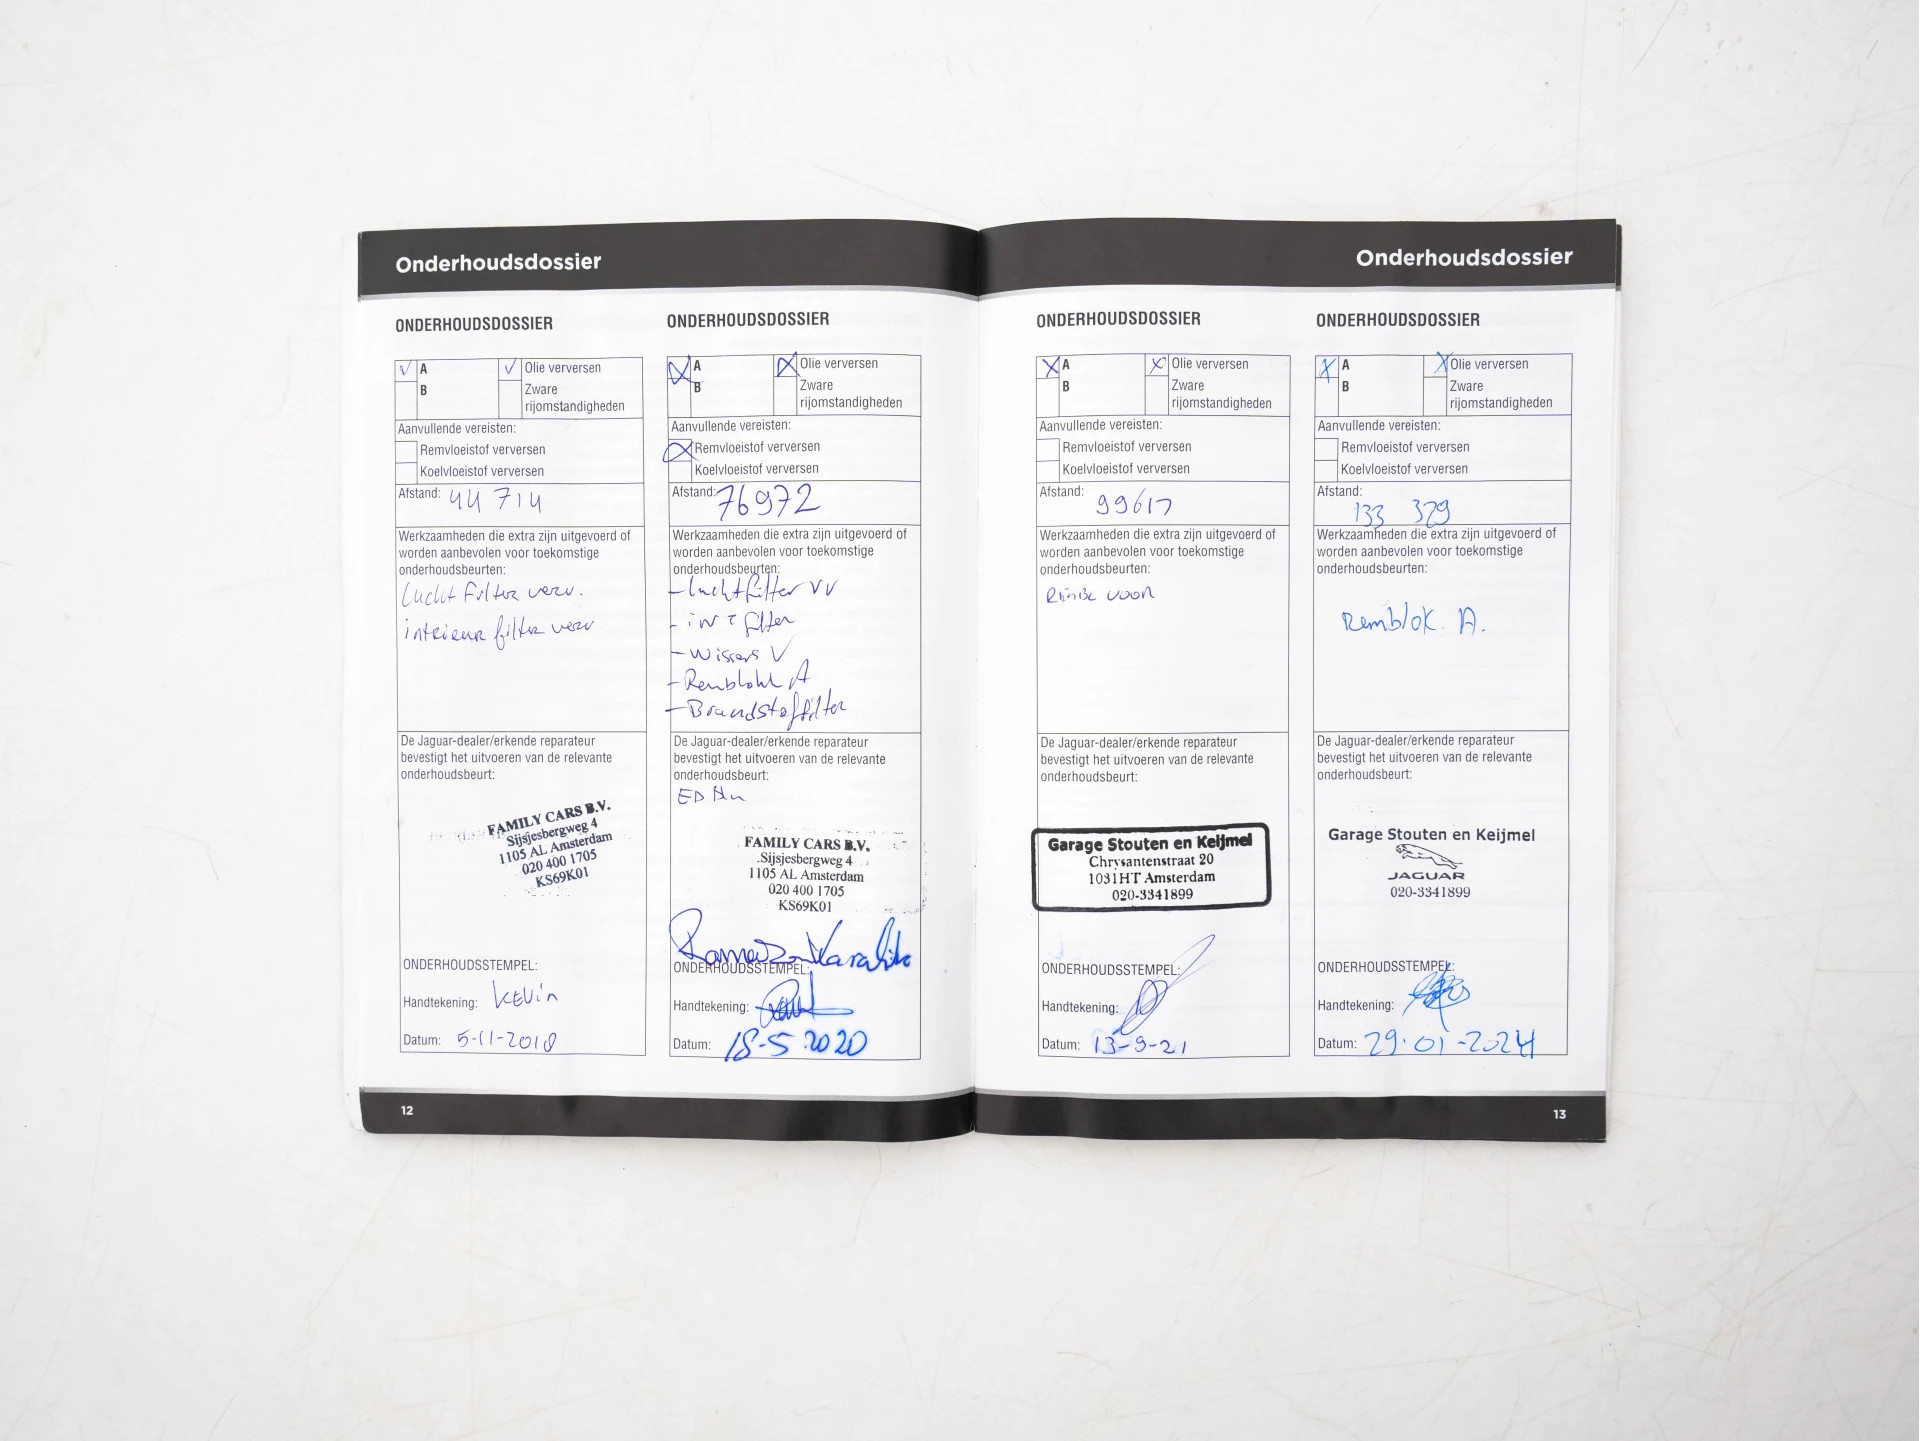 Onderhoudsdossier
ONDERHOUDSDOSSIER
A
Olie verversen
B
Zware
rijomstandigheden
Aanvullende vereisten:
Remvloeistof verversen
Koelvloeistof verversen
Afstand: 44 714
Werkzaamheden die extra zijn uitgevoerd of
worden aanbevolen voor toekomstige
onderhoudsbeurten:
Lucht Filter verv.
interieur filter verv
De Jaguar-dealer/erkende reparateur
bevestigt het uitvoeren van de relevante
onderhoudsbeurt:
FAMILY CARS B.V.
Sijsjesbergweg 4
1105 AL Amsterdam
020 400 1705
KS69K01
ONDERHOUDSSTEMPEL:
Handtekening: Kevin
Datum: 5-11-2018
12
ONDERHOUDSDOSSIER
A
Olie verversen
B
Zware
rijomstandigheden
Aanvullende vereisten:
Remvloeistof verversen
Koelvloeistof verversen
Afstand: 76972
Werkzaamheden die extra zijn uitgevoerd of
worden aanbevolen voor toekomstige
onderhoudsbeurten:
- Luchtfilter VV
- inT filter
- Wissers V
- Remblokk A
- Brandstoffilter
De Jaguar-dealer/erkende reparateur
bevestigt het uitvoeren van de relevante
onderhoudsbeurt:
FAMILY CARS B.V.
Sijsjesbergweg 4
1105 AL Amsterdam
020 400 1705
KS69K01
ONDERHOUDSSTEMPEL:
Handtekening:
Datum: 18-5 2020
Onderhoudsdossier
ONDERHOUDSDOSSIER
A
Olie verversen
B
Zware
rijomstandigheden
Aanvullende vereisten:
Remvloeistof verversen
Koelvloeistof verversen
Afstand: 99617
Werkzaamheden die extra zijn uitgevoerd of
worden aanbevolen voor toekomstige
onderhoudsbeurten:
voor
De Jaguar-dealer/erkende reparateur
bevestigt het uitvoeren van de relevante
onderhoudsbeurt:
Garage Stouten en Keijmel
Chrysantenstraat 20
1031HT Amsterdam
020-3341899
ONDERHOUDSSTEMPEL:
Handtekening:
Datum: 13-9-21
ONDERHOUDSDOSSIER
A
Olie verversen
B
Zware
rijomstandigheden
Aanvullende vereisten:
Remvloeistof verversen
Koelvloeistof verversen
Afstand:
133 379
Werkzaamheden die extra zijn uitgevoerd of
worden aanbevolen voor toekomstige
onderhoudsbeurten:
Remblok. A.
De Jaguar-dealer/erkende reparateur
bevestigt het uitvoeren van de relevante
onderhoudsbeurt:
Garage Stouten en Keijmel
JAGUAR
020-3341899
ONDERHOUDSSTEMPEL:
Handtekening:
Datum: 29-01-2024
13